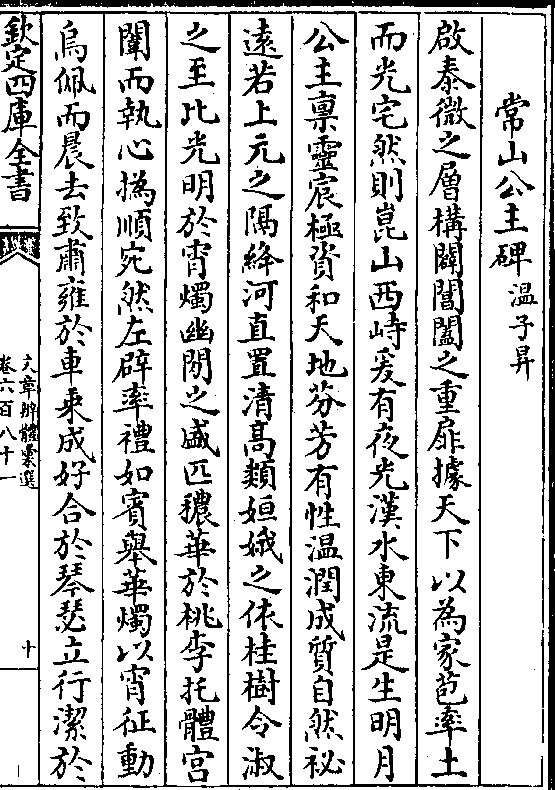 常山公主碑 温子昇
啟泰微之層構闢閶闔之重扉據天下以為家苞率土
而光宅然則崑山西峙爰有夜光漢水東流是生明月
公主稟靈宸極資和天地芬芳有性温潤成質自然祕
遠若上元之隔絳河直置清髙類姮娥之依桂樹令淑
之至比光明於宵燭幽閒之盛匹穠華於桃李托體宫
闈而執心撝順宛然左辟率禮如賓舉華燭以宵征動
鳥佩而晨去致肅雍於車乘成好合於琴瑟立行潔於
欽定四庫全書
文章辨體彙選
卷六百八十一
十